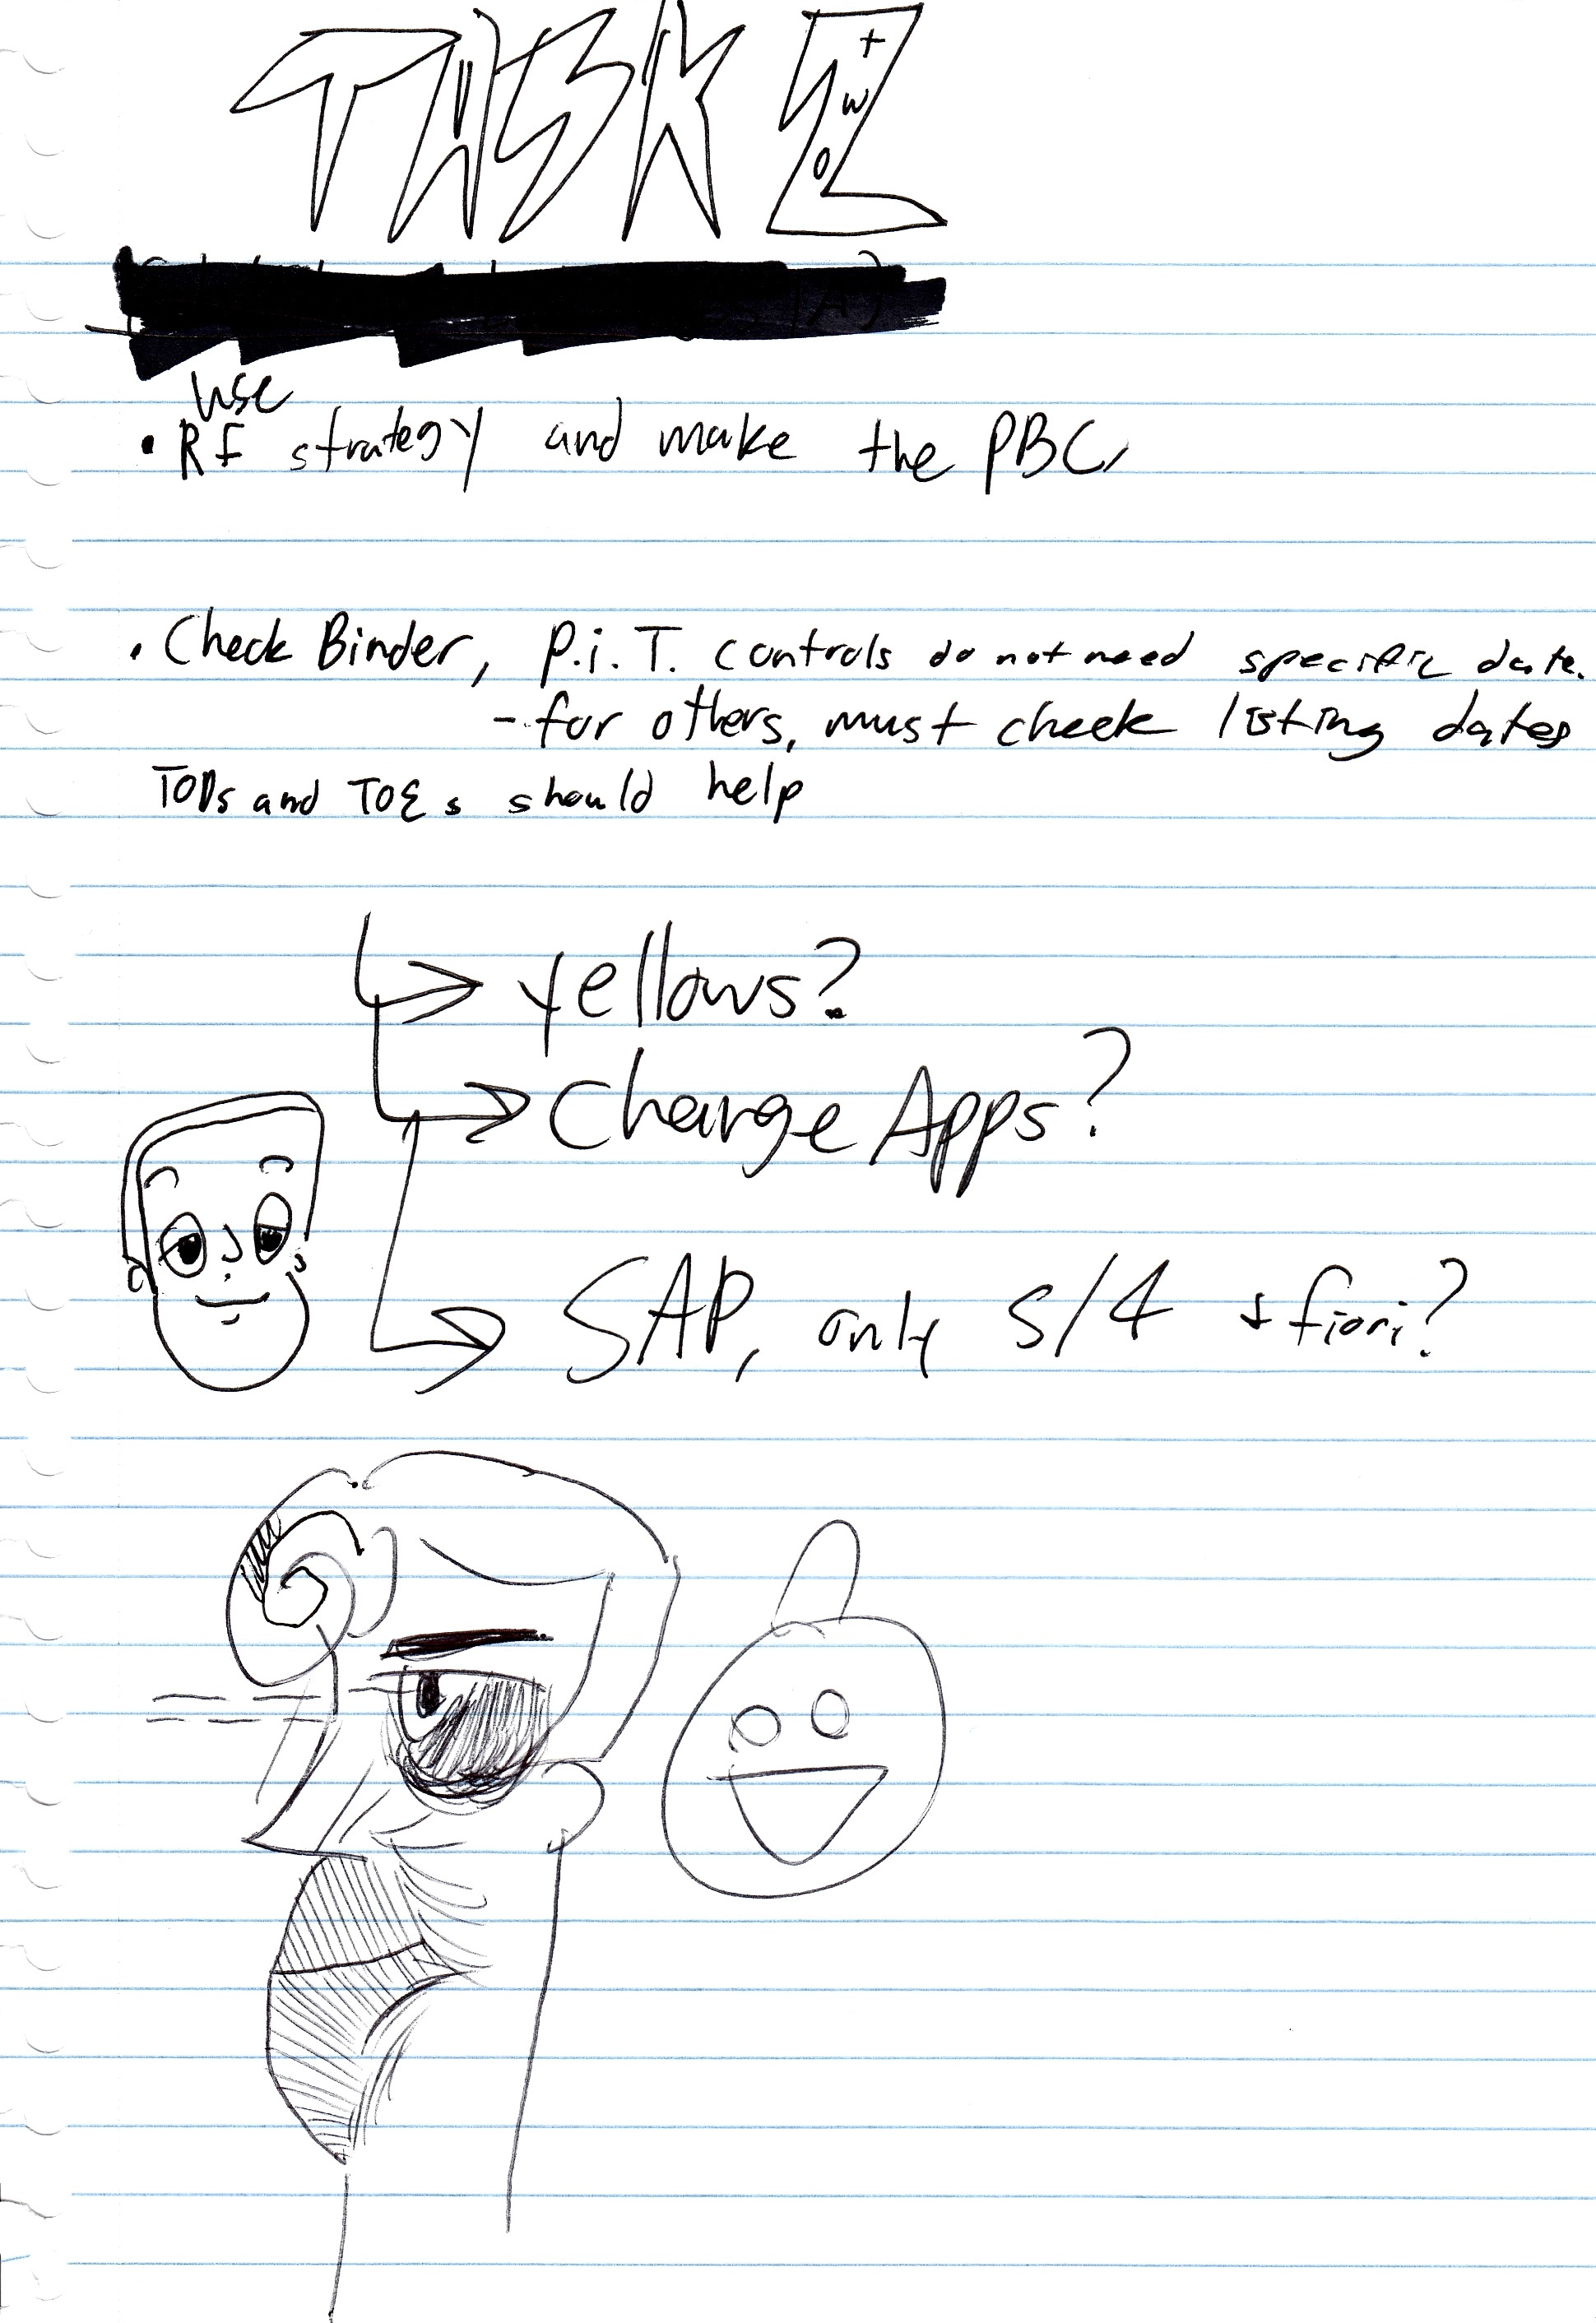 TASK 2
two
use
• RF strategy and make the PBC,
• Check Binder, P.i.T. controls do not need specific date.
- for others, must check listing dates
TODs and TOEs should help
yellows?
Change Apps?
SAP, only S/4 + fiori?